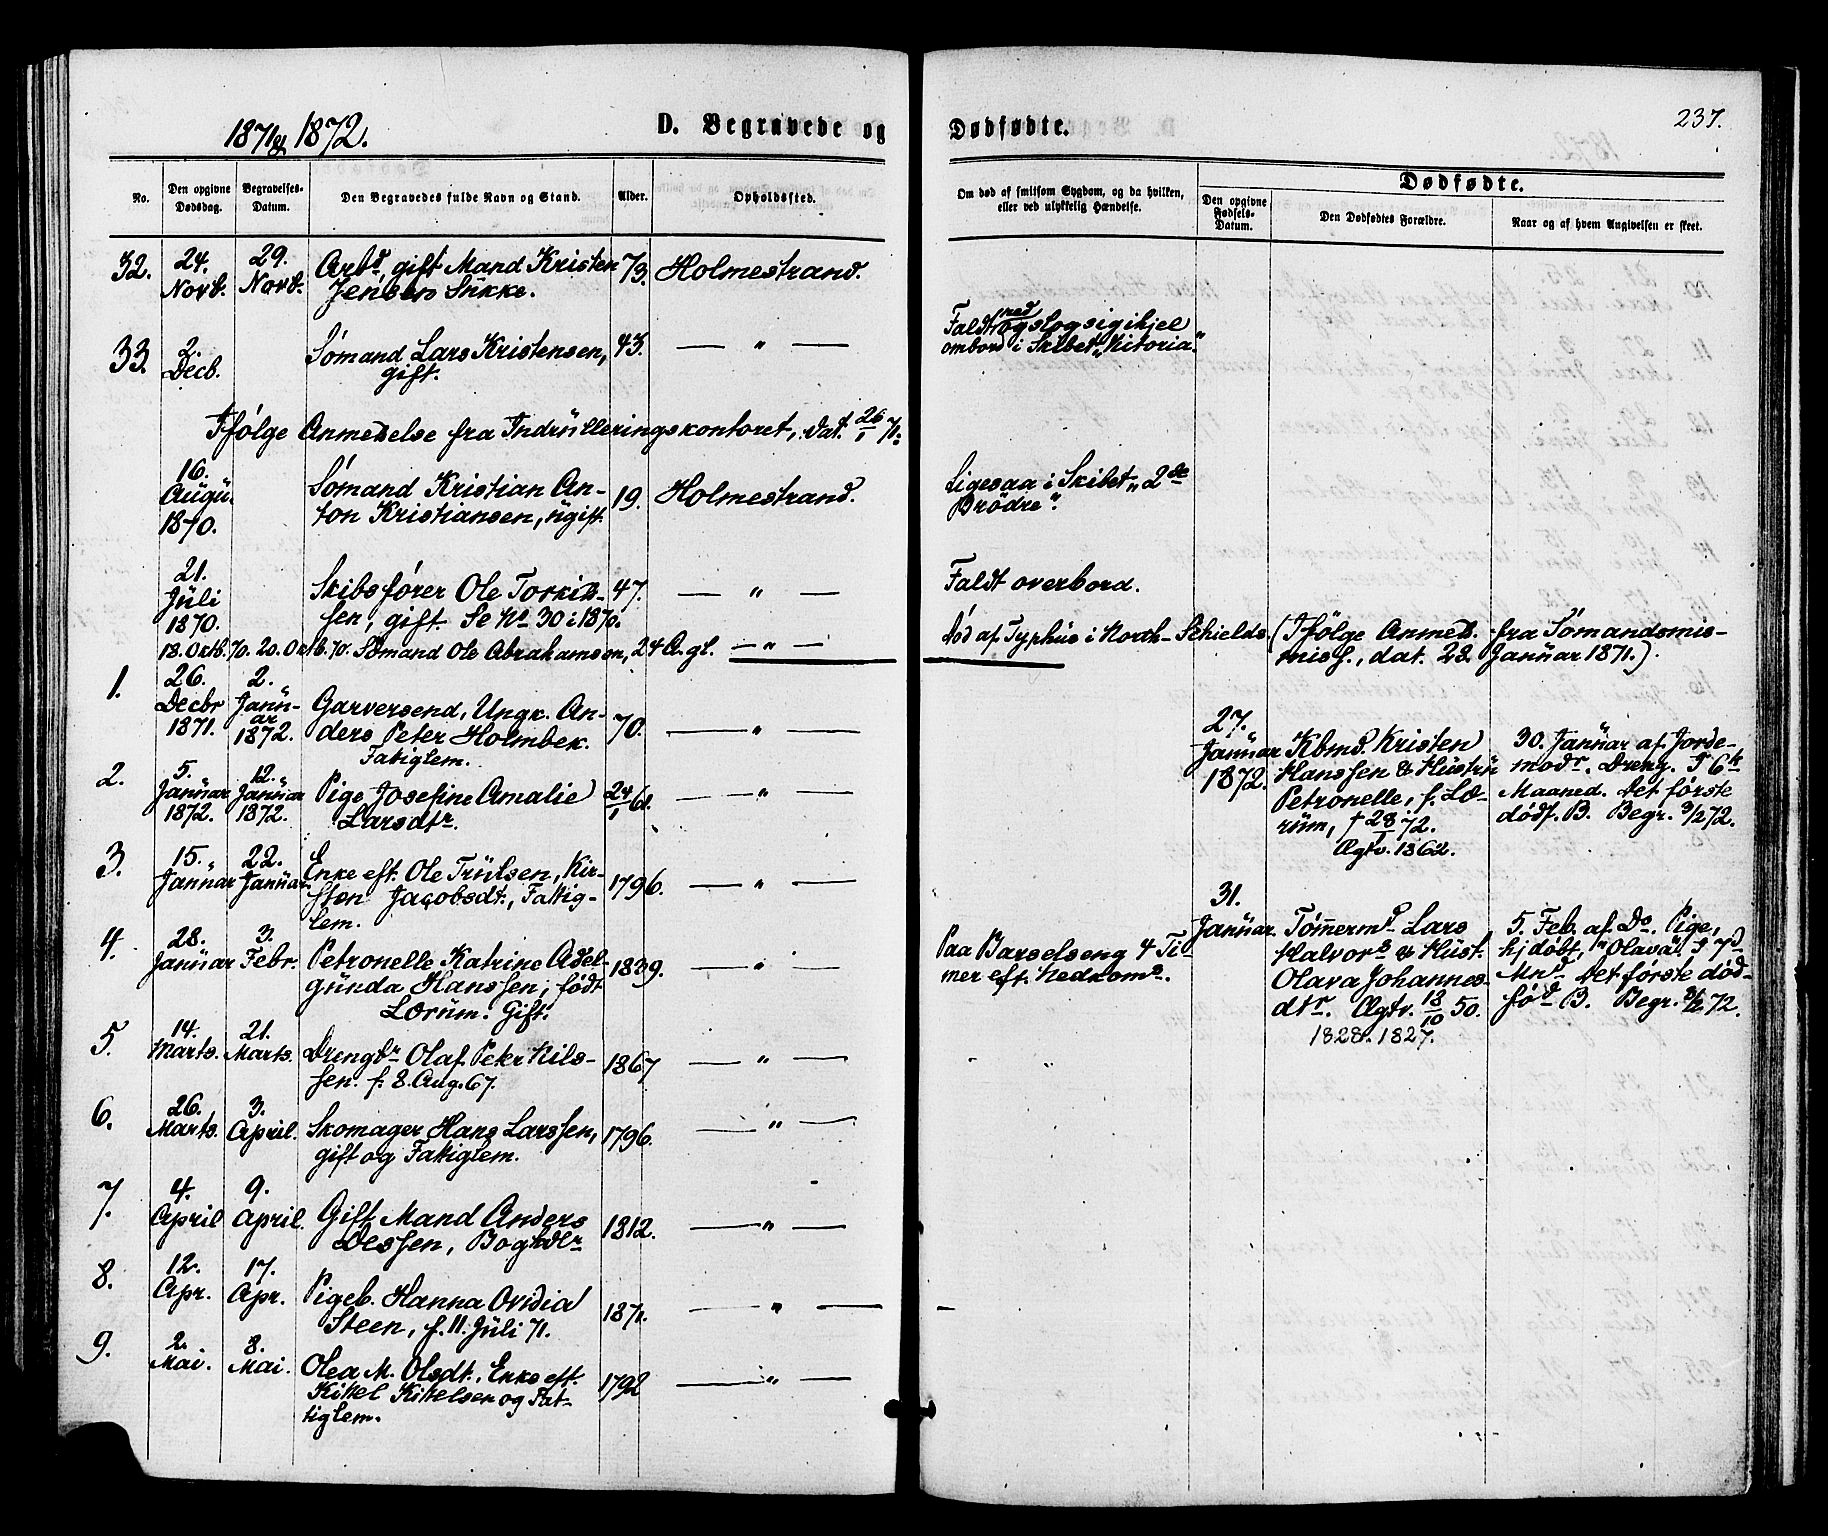 1871 & 1872.
D. Begravede og
Dødfødte.
237.
No.
Den opgivne Dødsdag.
Begravelses-Datum.
Den Begravedes fulde Navn og Stand.
Alder.
Opholdssted.
Om død af smitsom Sygdom, og da hvilken,
eller ved ulykkelig Hændelse.
Dødfødte.
Den opgivne Fødsels-Datum.
Den Dødfødtes Forældre.
Naar og af hvem Angivelsen er skeet.
32. 24. Novb. 29. Novb. Arbd, gift Mand Kristen 73. Holmestrand.
Jensen
33. 2. Decb. Sømand Lars Kristensen, 43. — " —
gift.
Faldt ned og slog sig ihjel
ombord i Skibet
Ifølge Anmeldelse fra Indrulleringskontoret, dat. 26/1 71.
16. Augu. 1870. Sømand Kristian An-
ton Kristiansen, ugift. 19. Holmestrand.
Ligesaa i Skibet „2de
Brödre“.
21. Juli 1870. Skibsfører Ole Torkild-
sen, gift. Se No 30 i 1870. 47. — " —
Faldt overbord.
18. Oktb. 70. 20. Oktb. 70. Sømand Ole Abrahamsen, 24 A. gl. — " —
Död af Typhus i North-Schields. (Ifølge Anmeld. fra Sømandsmis-
dat. 22. Januar 1871.)
1. 26. Decbr 1871. 2. Januar 1872. Garversvend, Ungk. An-
ders Peter Holmbek. 70. — " —
Fattiglem.
2. 5. Januar 1872. 12. Januar 1872. Pige Josefine Amalie 24/1 61. — " —
Larsdtr.
3. 15. Januar 22. Januar. Enke eft. Ole Trulsen, Kir-
sten Jacobsdt., Fattig- 1796. — " —
lem.
4. 28. Januar 3. Febr. Petronelle Katrine Adel-
gunda Hanssen, født 1839. — " —
Lørum. Gift.
Paa Barselseng 4 Ti-
mer eft. Nedkoms.
5. 14. Marts. 21. Marts. Drengbr Olaf Peter Nils-
sen. f. 8. Aug. 67. 1867 — " —
6. 26. Marts. 3. April. Skomager Hans Larssen, 1796. — " —
gift og Fattiglem.
7. 4. April 9. April. Gift Mand Anders 1812. — " —
8. 12. Apr. 17. Apr. Pigeb. Hanna Ovidia 1871. — " —
Steen, f. 11. Juli 71.
9. 2. Mai. 8. Mai. Olea M. Olsdt., Enke eft.
Kittel Kittelsen og Fat- 1792 — " —
tiglem.
27. Januar 1872. Kbmd. Kristen
Hanssen & Hustru
Petronelle, f. Lø-
rum, † 28/1 72.
Ægtv. 1862.
30. Januar af Jorde-
modr. Dreng. I 6te
Maaned. Det første
dødf. B. Begr. 3/2 72.
31. Januar. Tømmermd Lars
Halvors & Hust.
Olava Johannes-
dtr. Ægtv. 18/10 50.
1828. 1827.
5. Feb. af Do. Pige,
hjdøbt, "Olava". I 7d
Mnd. Det første død-
fød B. Begr. 72.